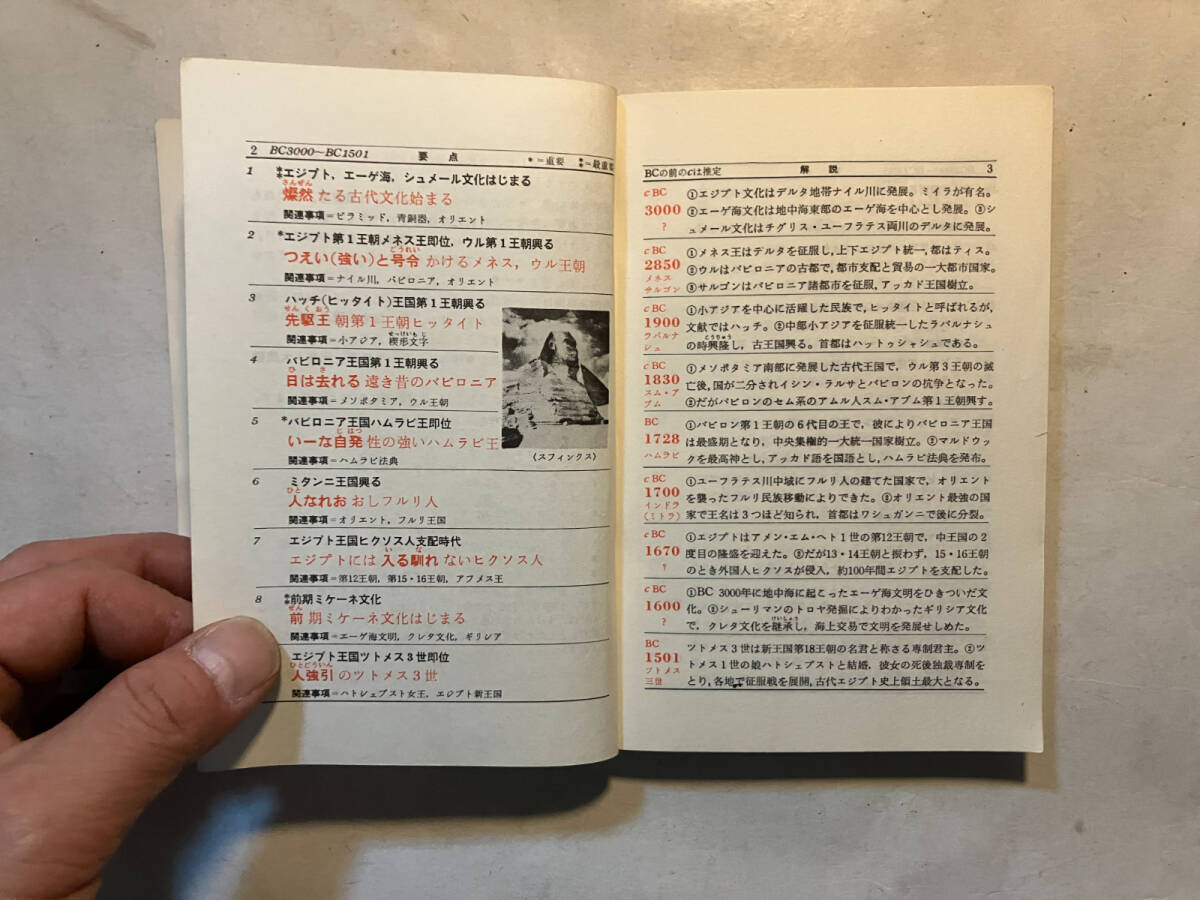 2 BC3000〜BC1501 要点 *=重要 **=最重要
1 **エジプト，エーゲ海，シュメール文化はじまる
さんぜん
燦然たる古代文化始まる
関連事項=ピラミッド，青銅器，オリエント
2 *エジプト第1王朝メネス王即位，ウル第1王朝興る
ごうれい
つえい(強い)と号令かけるメネス，ウル王朝
関連事項=ナイル川，バビロニア，オリエント
3 ハッチ(ヒッタイト)王国第1王朝興る
せんくおう
先駆王朝第1王朝ヒッタイト
せっけいもじ
関連事項=小アジア，楔形文字
4 バビロニア王国第1王朝興る
ひ さ
日は去れる遠き昔のバビロニア
関連事項=メソポタミア，ウル王朝
5 *バビロニア王国ハムラビ王即位
じはつ
いーな自発性の強いハムラビ王
関連事項=ハムラビ法典
〈スフィンクス〉
6 ミタンニ王国興る
ひと
人なれおおしフルリ人
関連事項=オリエント，フルリ王国
7 エジプト王国ヒクソス人支配時代
い な
エジプトには入る馴れないヒクソス人
関連事項=第12王朝，第15・16王朝，アフメス王
8 **前期ミケーネ文化
ぜん
前期ミケーネ文化はじまる
関連事項=エーゲ海文明，クレタ文化，ギリシア
エジプト王国ツトメス3世即位
ひとごういん
人強引のツトメス3世
関連事項=ハトシェプスト女王，エジプト新王国
BCの前のcは推定 解説 3
cBC ①エジプト文化はデルタ地帯ナイル川に発展。ミイラが有名。
3000 ②エーゲ海文化は地中海東部のエーゲ海を中心とし発展。③シ
? ュメール文化はチグリス・ユーフラテス両川のデルタに発展。
cBC ①メネス王はデルタを征服し，上下エジプト統一，都はティス。
2850 ②ウルはバビロニアの古都で，都市支配と貿易の一大都市国家。
メネス
サルゴン ③サルゴンはバビロニア諸都市を征服，アッカド王国樹立。
cBC ①小アジアを中心に活躍した民族で，ヒッタイトと呼ばれるが，
1900 文献ではハッチ。②中部小アジアを征服統一したラバルナシュ
こうりゅう
ラバルナシュ の時興隆し，古王国興る。首都はハットゥシャシュである。
cBC ①メソポタミア南部に発展した古代王国で，ウル第3王朝の滅
1830 亡後，国が二分されイシン・ラルサとバビロンの抗争となった。
スム・アブム ②だがバビロンのセム系のアムル人スム・アブム第1王朝興す。
BC ①バビロン第1王朝の6代目の王で，彼によりバビロニア王国
1728 は最盛期となり，中央集権的一大統一国家樹立。②マルドゥッ
ハムラビ クを最高神とし，アッカド語を国語とし，ハムラビ法典を発布。
cBC ①ユーフラテス川中域にフルリ人の建てた国家で，オリエント
1700 を襲ったフルリ民族移動によりできた。②オリエント最強の国
インドラ(ミトラ) 家で王名は3つほど知られ，首都はワシュガンニで後に分裂。
cBC ①エジプトはアメン・エム・ヘト1世の第12王朝で，中王国の2
1670 度目の隆盛を迎えた。②だが13・14王朝と振わず，15・16王朝
? のとき外国人ヒクソスが侵入，約100年間エジプトを支配した。
cBC ①BC 3000年に地中海に起こったエーゲ海文明をひきついだ文
1600 化。②シューリマンのトロヤ発掘によりわかったギリシア文化
けいしょう
? で，クレタ文化を継承し，海上交易で文明を発展せしめた。
BC ツトメス3世は新王国第18王朝の名君と称さる専制君主。②ツ
1501 トメス1世の娘ハトシェプストと結婚，彼女の死後独裁専制を
ツトメス三世 とり，各地で征服戦を展開，古代エジプト史上領土最大となる。